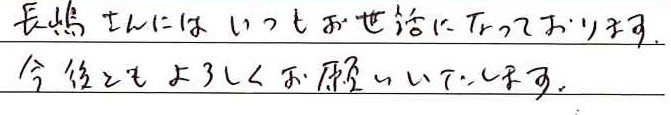 長嶋さんにはいつもお世話になっております.
今後ともよろしくお願いいたします.